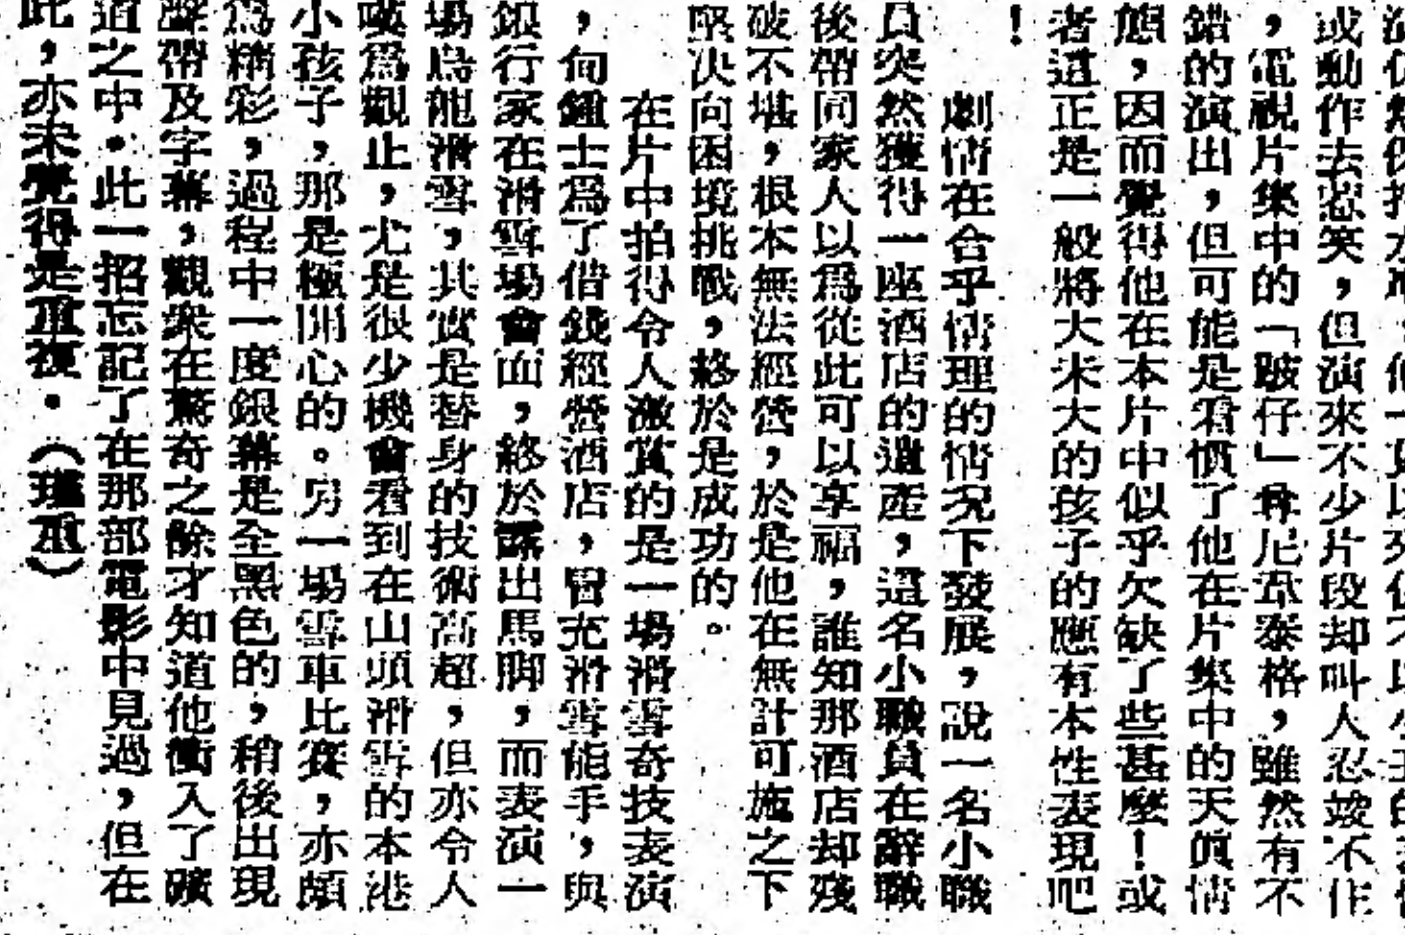 或動作去惹笑，但演來不少片段却叫人忍竣不住
，電視片集中的「跛仔」韋尼韋泰格，雖然有不
錯的演出，但可能是看慣了他在片集中的天眞情
態，因而覺得他在本片中似乎欠缺了些甚麼！或
者這正是一般將大未大的孩子的應有本性表現吧
！
劇情在合乎情理的情況下發展，說一名小職
員突然獲得一座酒店的遺產，這名小職員在辭職
後帶同家人以爲從此可以享福，誰知那酒店却殘
破不堪，根本無法經營，於是他在無計可施之下
堅决向困境挑戰，終於是成功的。
在片中拍得令人激賞的是一場滑雪奇技表演
，甸鍾士爲了借錢經營酒店，冒充滑雪能手，與
銀行家在滑雪場會面，終於露出馬脚，而表演一
場烏龍滑雪，其實是替身的技術高超，但亦令人
嘆爲觀止，尤是很少機會看到在山頭滑雪的本港
小孩子，那是極開心的。另一場雪車比賽，亦頗
爲精彩，過程中一度銀幕是全黑色的，稍後出現
聲帶及字幕，觀衆在驚奇之餘才知道他衝入了礦
道之中。此一招忘記了在那部電影中見過，但在
此，亦未覺得是重複。（瑤重）